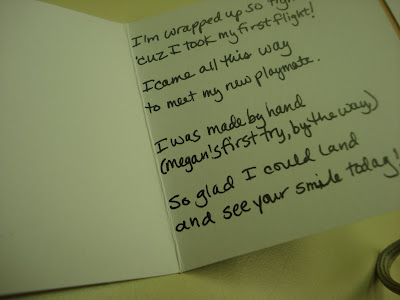 I'm wrapped up so tight
'cuz I took my first flight!
I came all this way
to meet my new playmate.
I was made by hand
(Megan's first try, by the way)
So glad I could land
and see your smile today!